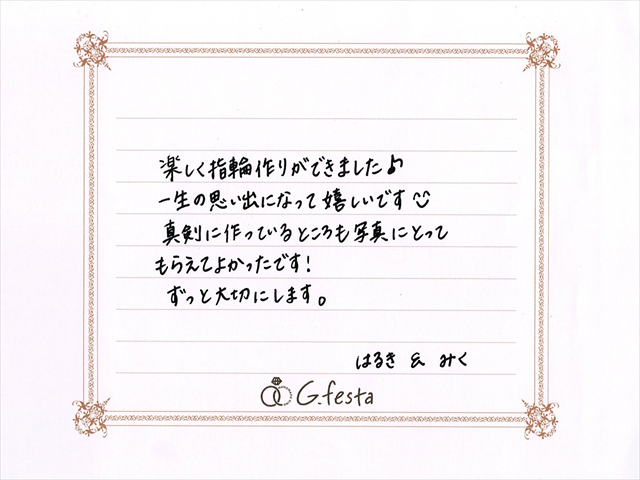 楽しく指輪作りができました♪
一生の思い出になって嬉しいです☺
真剣に作っているところも写真にとって
もらえてよかったです!
ずっと大切にします。
はるき & みく
G.festa